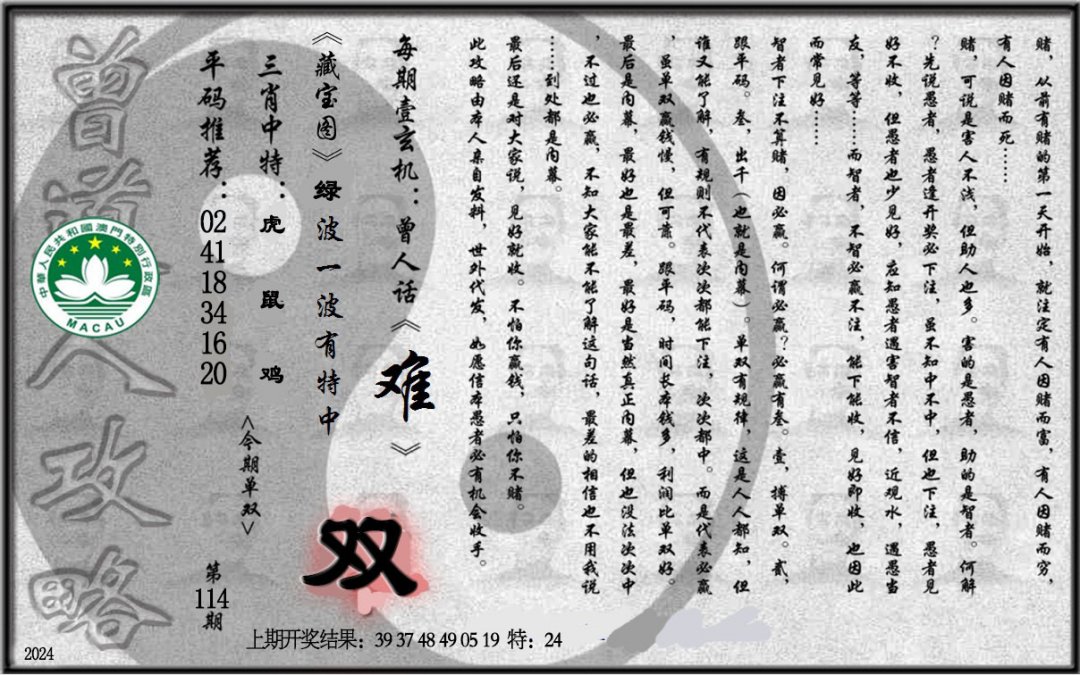 赌，从前有赌的第一天开始，就注定有人因赌而富，有人因赌而穷，
有人因赌而死……
赌，可说是害人不浅，但助人也多。害的是愚者，助的是智者。何解
？先说愚者，愚者逢开奖必下注，虽不知中不中，但也下注，愚者见
好不收，但愚者也少见好，应知愚者遇害智者不信，近观水，遇愚当
友，等等……而智者，不智必赢不注，能下能收，见好即收，也因此
而常见好……
智者下注不算赌，因必赢。何谓必赢？必赢有叁。壹，搏单双。贰，
跟平码。叁，出千（也就是内幕）。单双有规律，这是人人都知，但
谁又能了解，有规则不代表次次都能下注，次次都中。而是代表必赢
，虽单双赢钱慢，但可靠。跟平码，时间长本钱多，利润比单双好。
最后是内幕，最好也是最差，最好是当然真正内幕，但也没法次次中
，不过也必赢，不知大家能不能了解这句话，最差的相信也不用我说
……到处都是内幕。
最后还是对大家说，见好就收。不怕你赢钱，只怕你不赌。
此攻略由本人亲自发料，世外代发，如愿信本愚者必有机会收手。
每期壹玄机：曾人话《难》
《藏宝图》绿波一波有特中
三肖中特：虎 鼠 鸡
<今期单双>
双
平码推荐：02 41 18 34 16 20
第114期
曾道人攻略
中華人民共和國澳門特別行政區
MACAU
上期开奖结果：39 37 48 49 05 19 特：24
2024